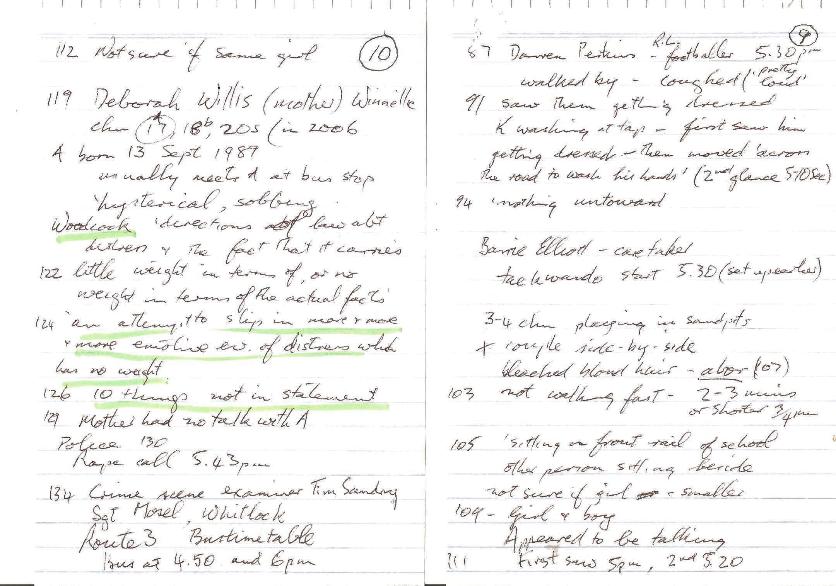 112 Not sure if same girl
10
119 Deborah Willis (mother) Winnelle
chn 17, 18, 20s (in 2006
A born 13 Sept 1989
usually meets A at bus stop
'hysterical, sobbing
Woodcock 'directions of law abt
distress & the fact that it carries
122 little weight in terms of, or no
weight in terms of the actual facts'
124 'an attempt to slip in more & more
& more emotive ev. of distress which
has no weight
126 10 things not in statement
129 Mother had no talk with A
Police 130
Rape call 5.43pm
134 Crime scene examiner Tim
Sgt Morel, Whitlock
Route 3 Bustimetable
Bus at 4.50 and 6pm
9
87 Darren Perkins - R.L. footballer 5.30pm
walked by - coughed ('pretty loud'
91 saw them getting dressed
K washing at tap - first saw him
getting dressed - then moved 'across
the road to wash his hands' (2nd glance 5-10sec)
94 'nothing untoward
Barrie Elliott - caretaker
taekwando start 5.30 (set up earlier)
3-4 chn playing in sandpits
+ couple side-by-side
bleached blond hair - abor (107)
103 not walking fast - 2-3 mins
or shorter 3/4 min
105 'sitting on front rail of school
other person sitting beside
not sure if girl - smaller
109 - Girl & boy
Appeared to be talking
111 First saw 5pm, 2nd 5.20